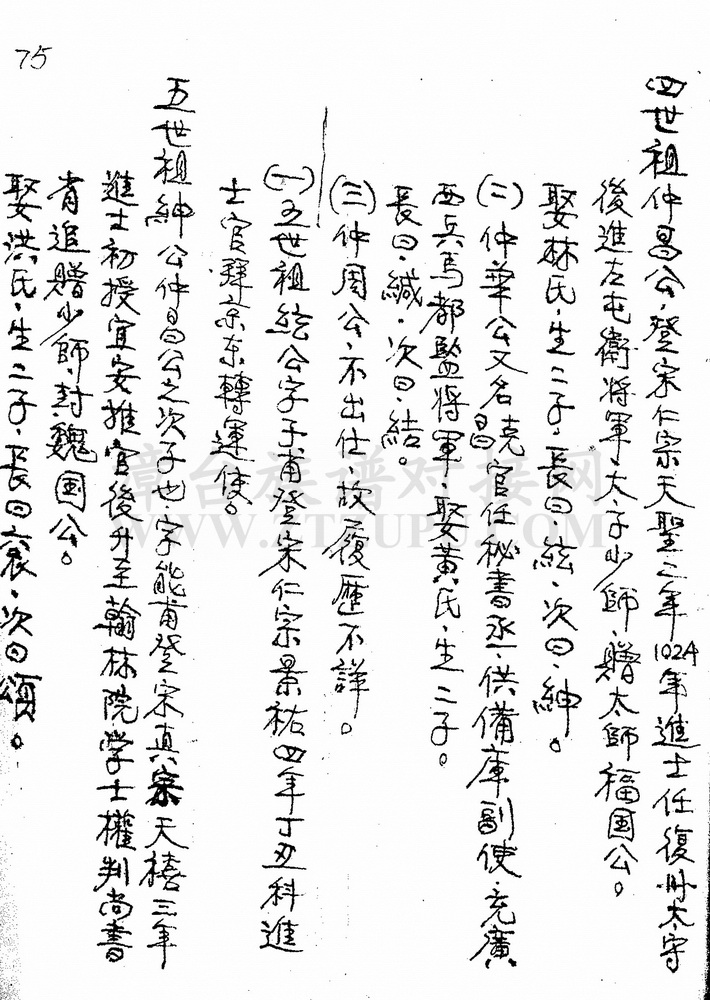 75
四世祖仲昌公,登宋仁宗天聖二年1024年進士任復州太守
後進左屯衛將軍、太子少師、贈太師福国公。
娶林氏、生二子、長曰、絃、次曰、紳。
(二)仲華公又名昌堯官任秘書丞、供備庫副使、充廣
西兵馬都監將軍、娶黃氏、生二子。
長曰、緘、次曰、結。
(三)仲周公、不出仕、故履歷不詳。
(一)五世祖絃公字子甫登宋仁宗景祐四年丁丑科進
士官拜京东轉運使。
五世祖紳公仲昌公之次子也、字能甫登宋真宗天禧三年
進士初授宜安推官後升至翰林院学士權判尚書
省追贈少師、封魏国公。
娶洪氏、生二子、長曰袞、次曰頌。
漳台族谱对接网
WWW.ZTZUPU.COM